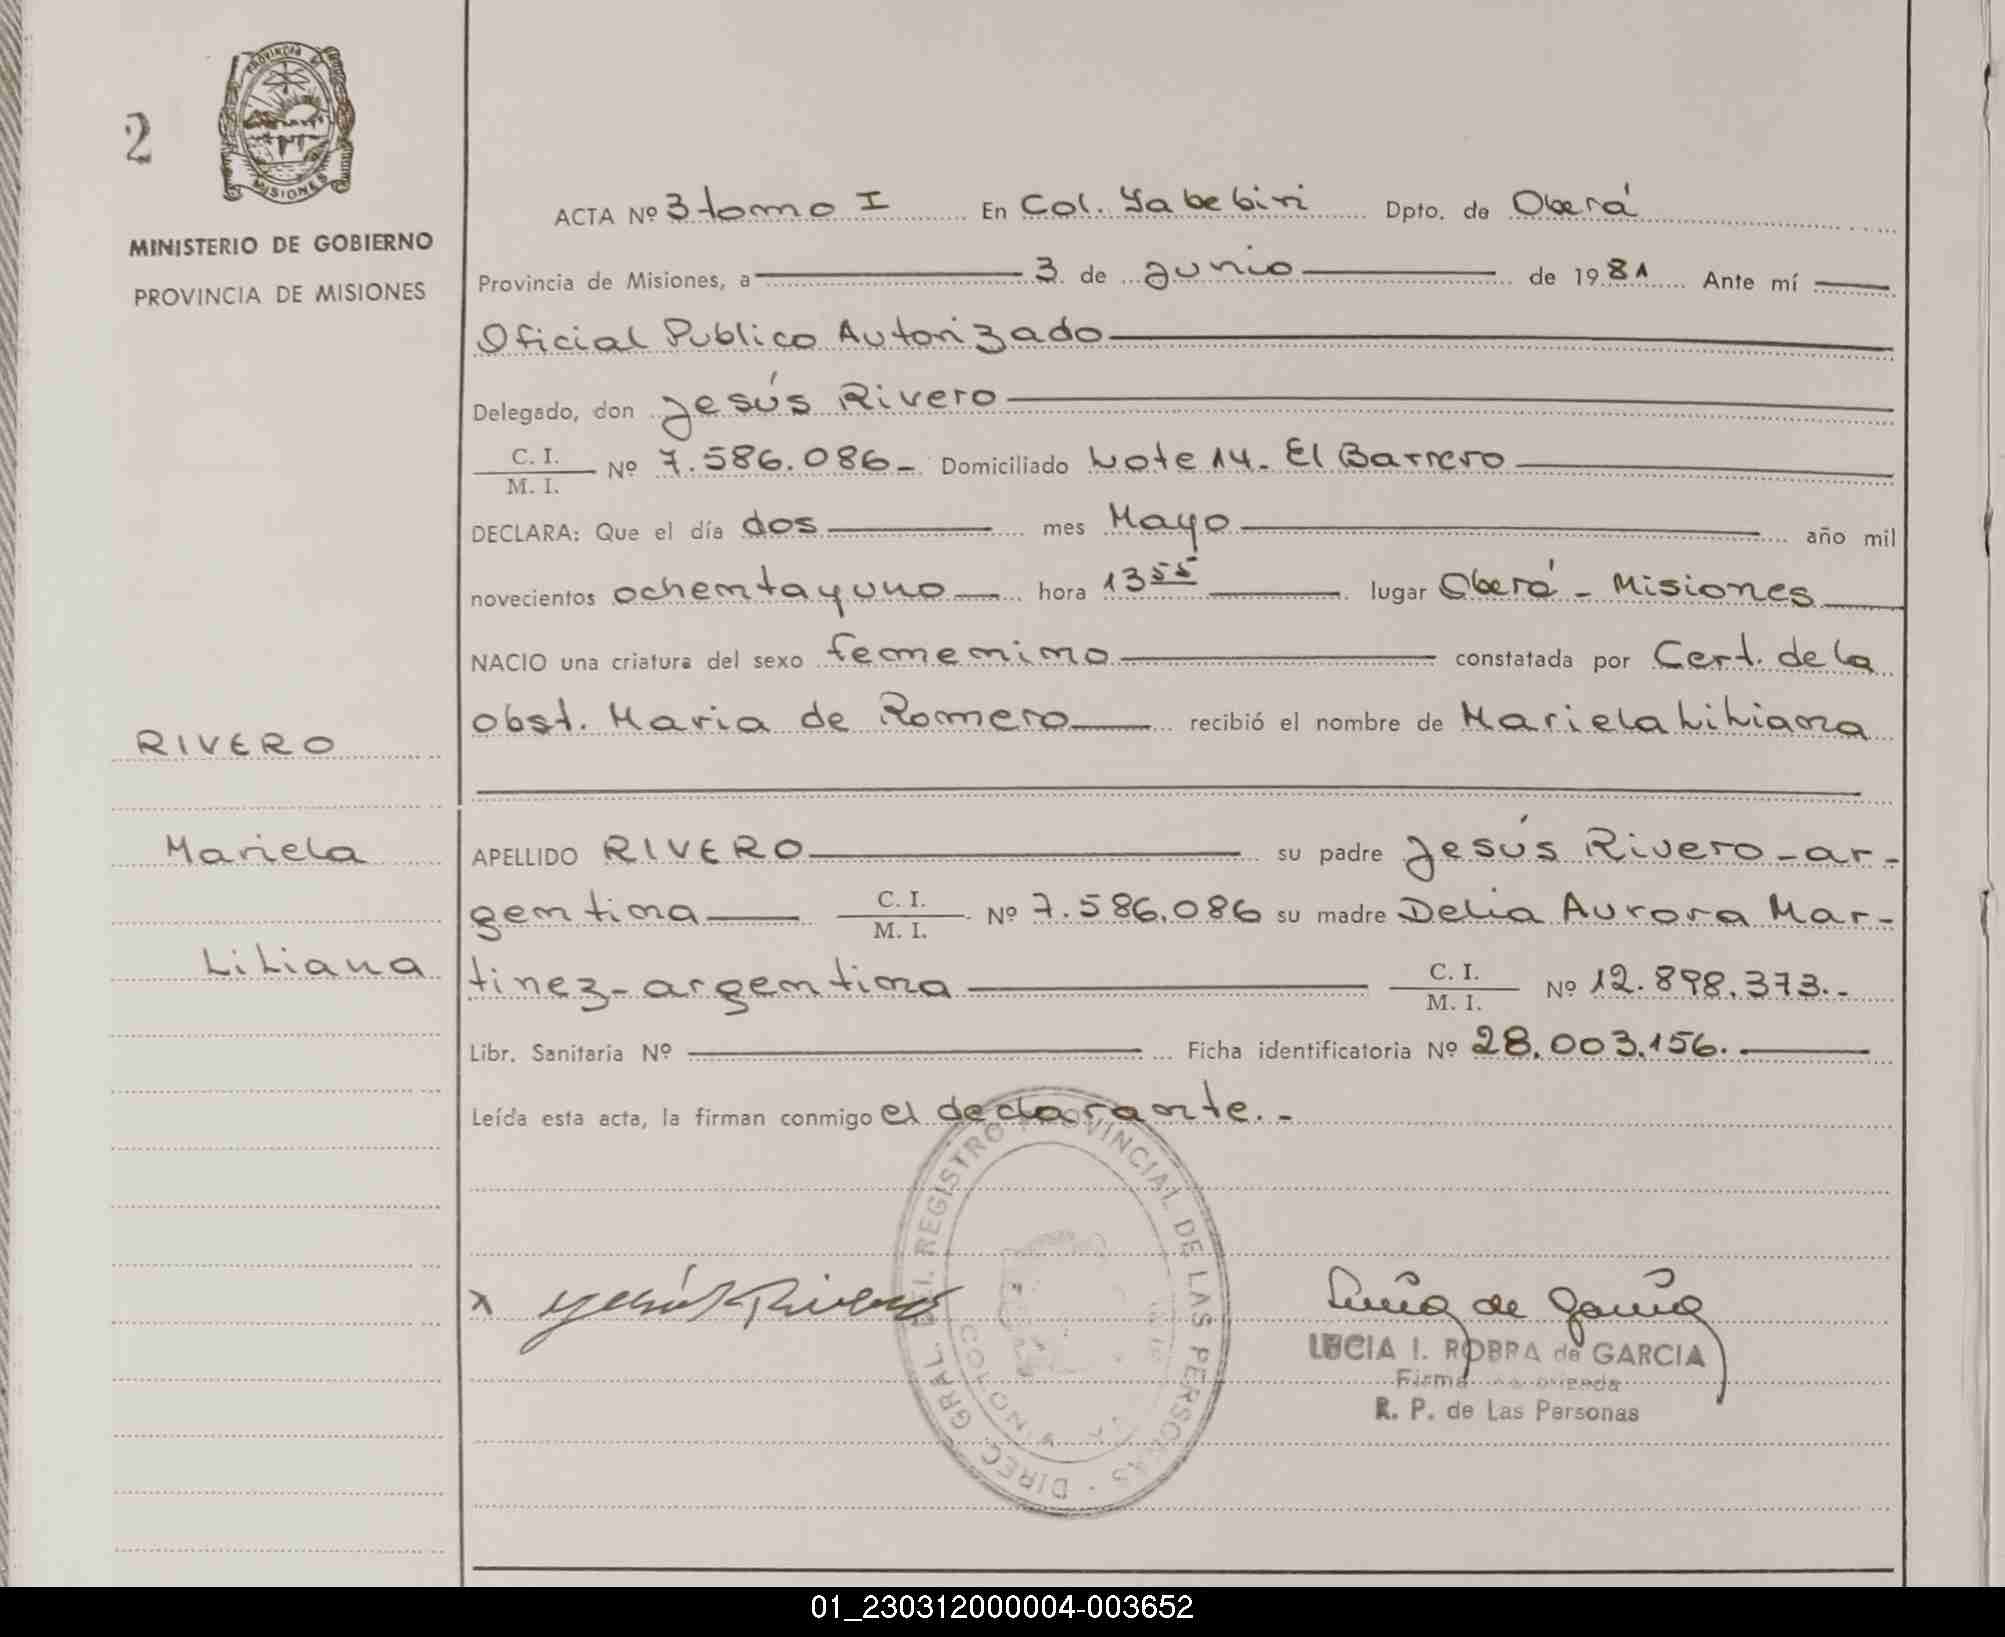 PROVINCIA DE
MISIONES
2
MINISTERIO DE GOBIERNO
PROVINCIA DE MISIONES
ACTA Nº 3 tomo I En Col. Yabebiri Dpto. de Oberá
Provincia de Misiones, a 3 de Junio de 1981 Ante mí
Oficial Publico Autorizado
Delegado, don Jesús Rivero
C. I.
M. I. Nº 7.586.086- Domiciliado Lote 14- El Barrero
DECLARA: Que el día dos mes Mayo año mil
novecientos ochentayuno hora 13 55 lugar Oberá - Misiones
NACIO una criatura del sexo femenino constatada por Cert. de la
obst. Maria de Romero recibió el nombre de Mariela Liliana
RIVERO
Mariela
Liliana
APELLIDO RIVERO su padre Jesús Rivero - ar-
gentina C. I.
M. I. Nº 7.586.086 su madre Delia Aurora Mar-
tinez - argentina C. I.
M. I. Nº 12.898.373.-
Libr. Sanitaria Nº Ficha identificatoria Nº 28.003.156.
Leída esta acta, la firman conmigo el declarante.-
DIREC. GRAL. DEL REGISTRO PROVINCIAL DE LAS PERSONAS
COLONIA
x Jesús Rivero
Lucia de Garcia
LUCIA I. ROBRA de GARCIA
Firma
R. P. de Las Personas
01_230312000004-003652